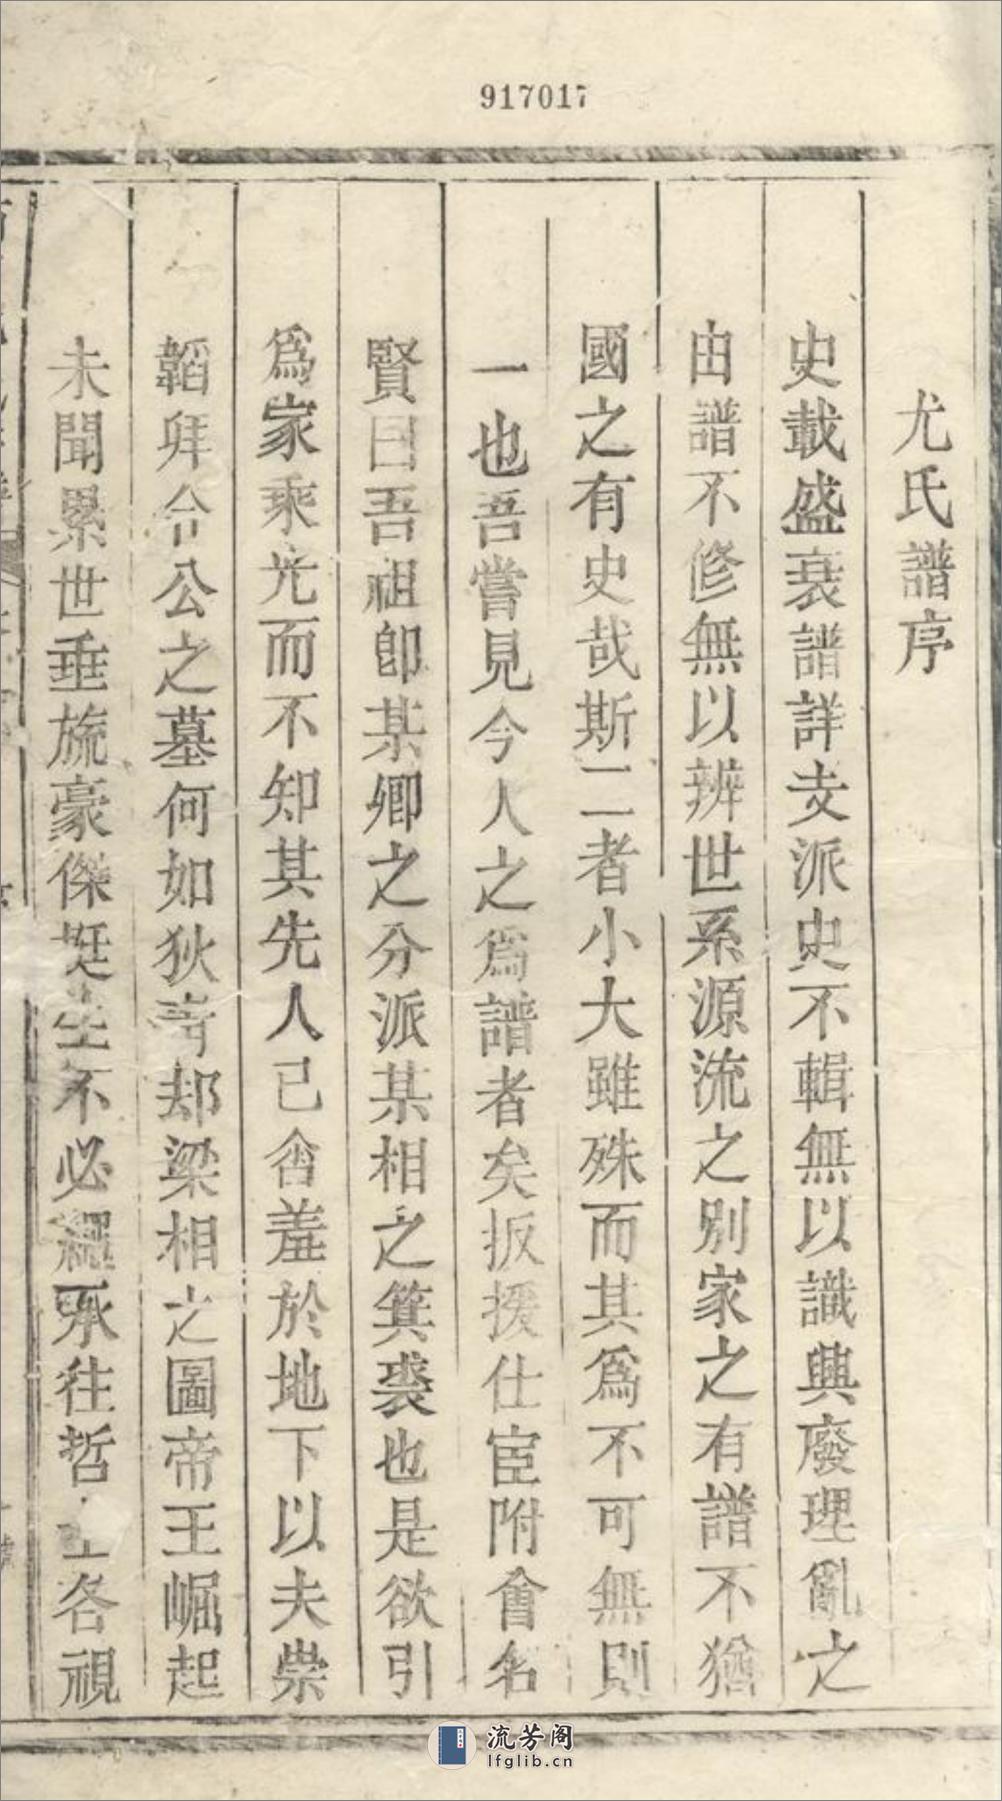 917017
尤氏譜序
史載盛衰譜詳支派史不輯無以識興廢理亂之
由譜不修無以辨世系源流之別家之有譜不猶
國之有史哉斯二者小大雖殊而其爲不可無則
一也吾嘗見今人之爲譜者矣扳援仕宦附會名
賢曰吾祖卽某卿之分派某相之箕裘也是欲引
爲家乘光而不知其先人已含羞於地下以夫崇
韜拜令公之墓何如狄青却梁相之圖帝王崛起
未聞累世垂旒豪傑挺生不必繩承往哲士各視
流芳阁
lfglib.cn